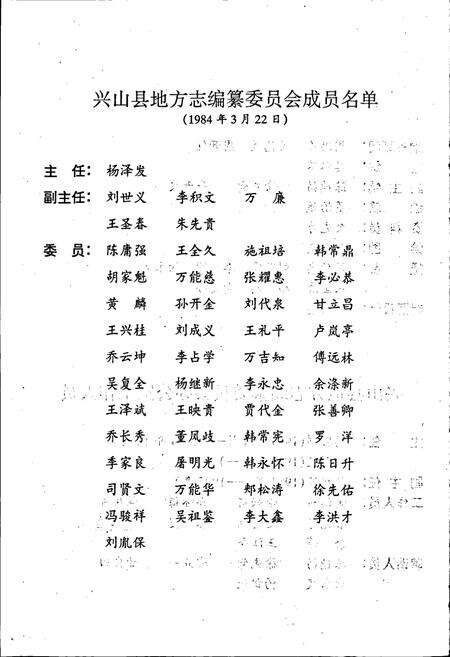 兴山县地方志编纂委员会成员名单
(1984年3月22日)
主 任：杨泽发
副主任：刘世义 李积文 万 廉
王圣春 朱先贵
委 员：陈庸强 王全久 施祖培 韩常鼎
胡家魁 万能慈 张耀惠 李必恭
黄 麟 孙开金 刘代泉 甘立昌
王兴桂 刘成义 王礼平 卢岚亭
乔云坤 李占学 万吉知 傅远林
吴复全 杨继新 李永忠 余涤新
王泽斌 王映贵 贾代金 张善卿
乔长秀 董凤歧 韩常宪 罗 洋
李家良 屠明光 韩永怀 陈日升
司贤文 万能华 郏松涛 徐先佑
冯骏祥 吴祖鉴 李大鑫 李洪才
刘胤保